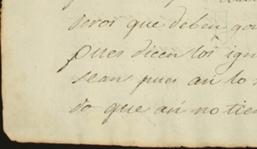 seros que deben gos
pues dicen los ign
sean pues an lo
do que aú no tien